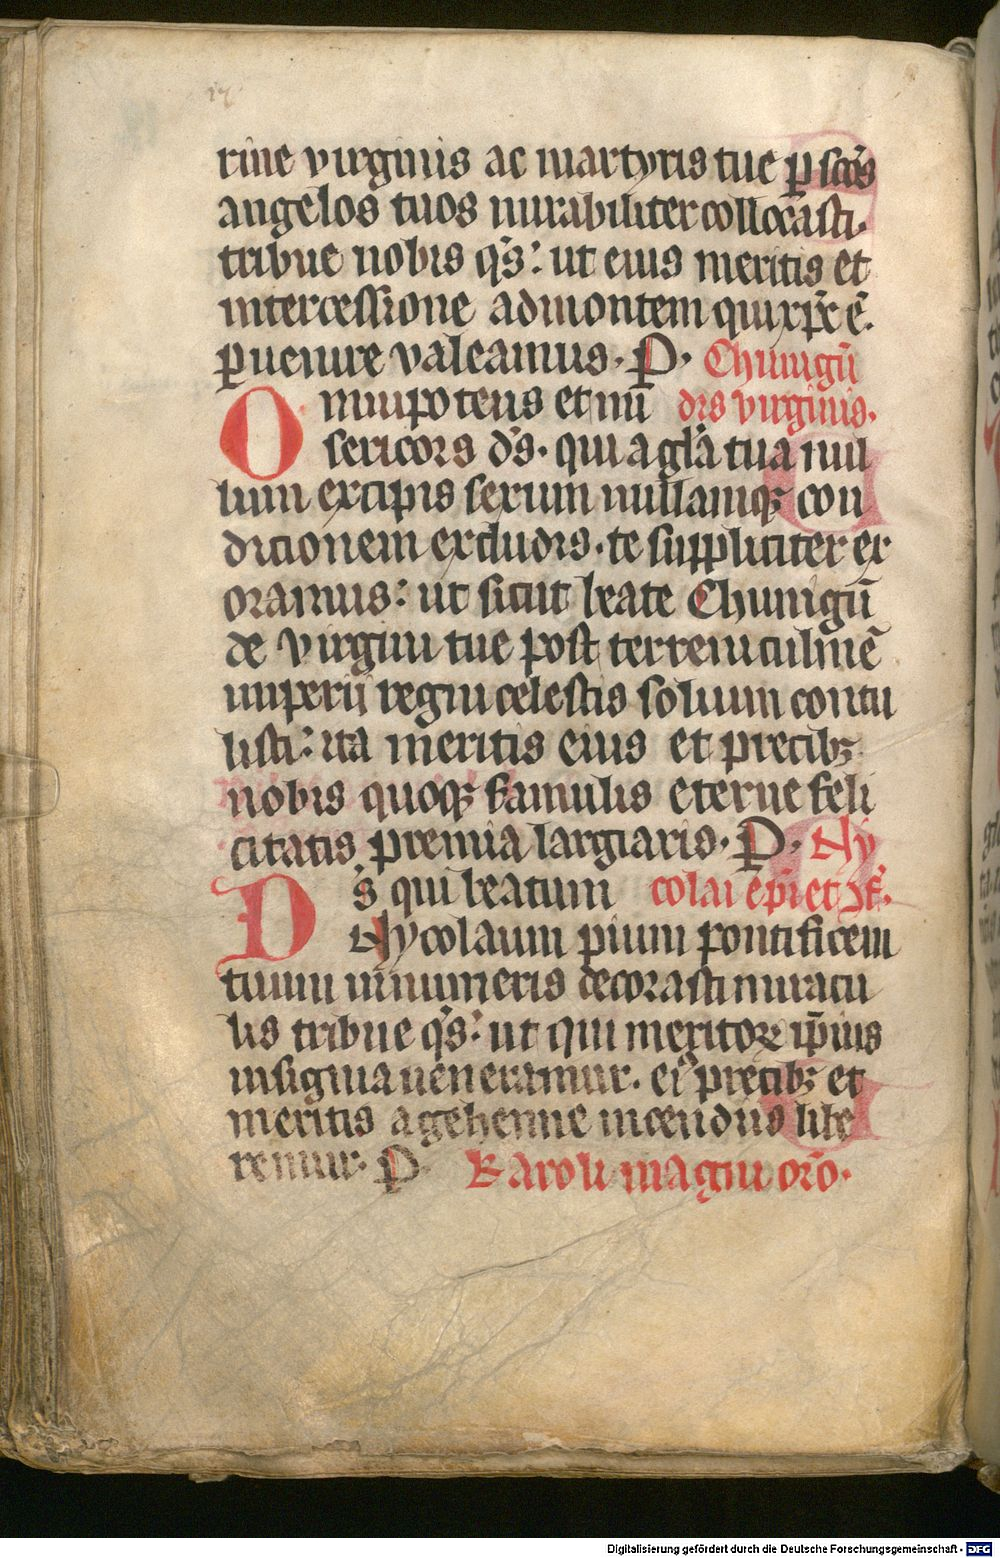 rine virginis ac martyris tue ꝑ scōs
angelos tuos mirabiliter collocasti.
tribue nobis qs̄: ut eius meritis et
intercessione ad montem qui xp̄c ē.
ꝑuenire valeamus. P. Chunigū
Omnipotens et mi dis virginis.
sericors ds̄. qui a gl̄a tua nul
lum excipis sexum nullamqꝫ con
dicionem excludis. te suppliciter ex
oramus: ut sicut beate Chunigū
de virgini tue post terreni culmē
imperii regni celestis solium contu
listi: ita meritis eius et precibꝫ
nobis quoqꝫ famulis eterne feli
citatis premia largiaris. P. Ny
Ds̄ qui beatum colai ep̄i et ꝯf̄.
Nycolaum pium pontificem
tuum innumeris decorasti miracu
lis tribue qs̄: ut qui meritoꝝ ip̄ius
insignia ueneramur. eiꝰ precibꝫ et
meritis a gehenne incendiis libe
remur. P. Karoli magni oro.
Digitalisierung gefördert durch die Deutsche Forschungsgemeinschaft - DFG